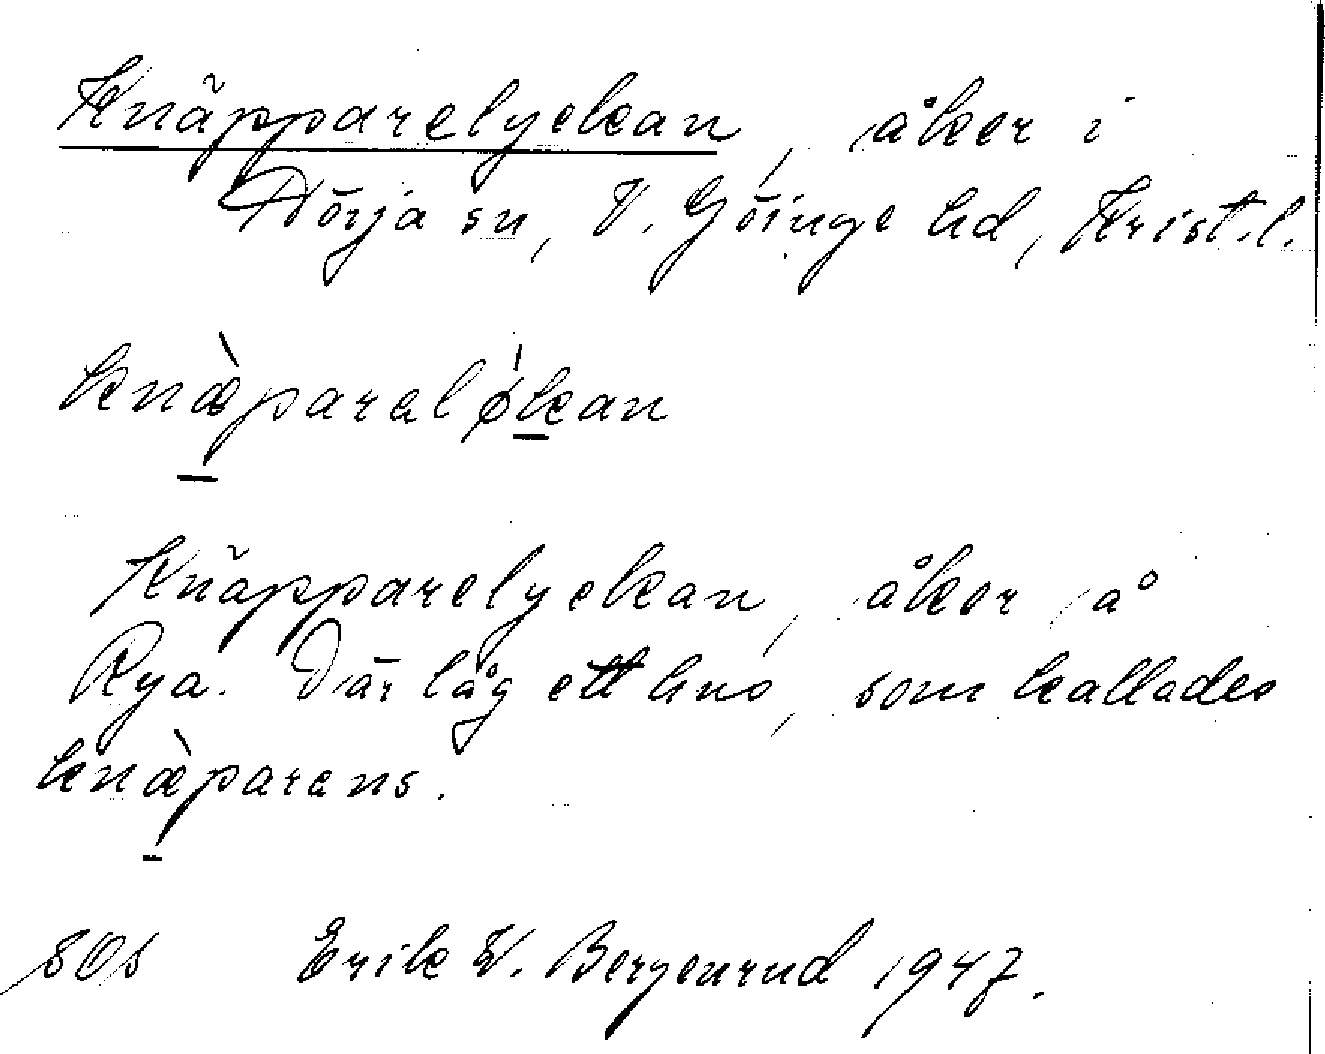 Knäpparelyckan, åker i
Nörja sn, V. Göinge hd, Krist.l.
knæ̀parelǿkan
Knäpparelyckan, åker å
Rya. Där låg ett hus, som kallades
knæ̀parens.
Erik W. Bergenrud 1947.